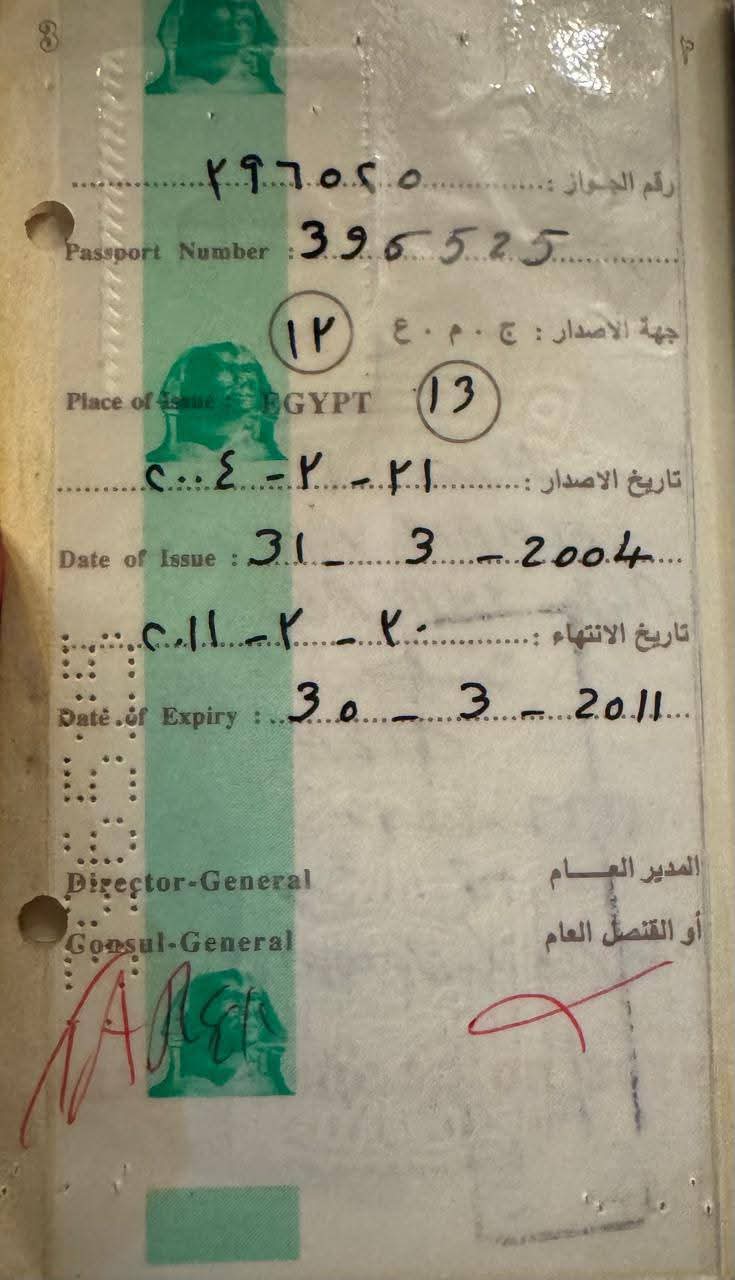 3 ٣
رقم الجواز : ٣٩٦٥٢٥
Passport Number : 396525
جهة الاصدار : ج . م . ع ١٣
Place of Issue : EGYPT 13
تاريخ الاصدار : ٣١ - ٣ - ٢٠٠٤
Date of Issue : 31 - 3 - 2004
تاريخ الانتهاء : ٣٠ - ٣ - ٢٠١١
Date of Expiry : 30 - 3 - 2011
Director-General المدير العـــام
Consul-General أو القنصل العام
TAREK